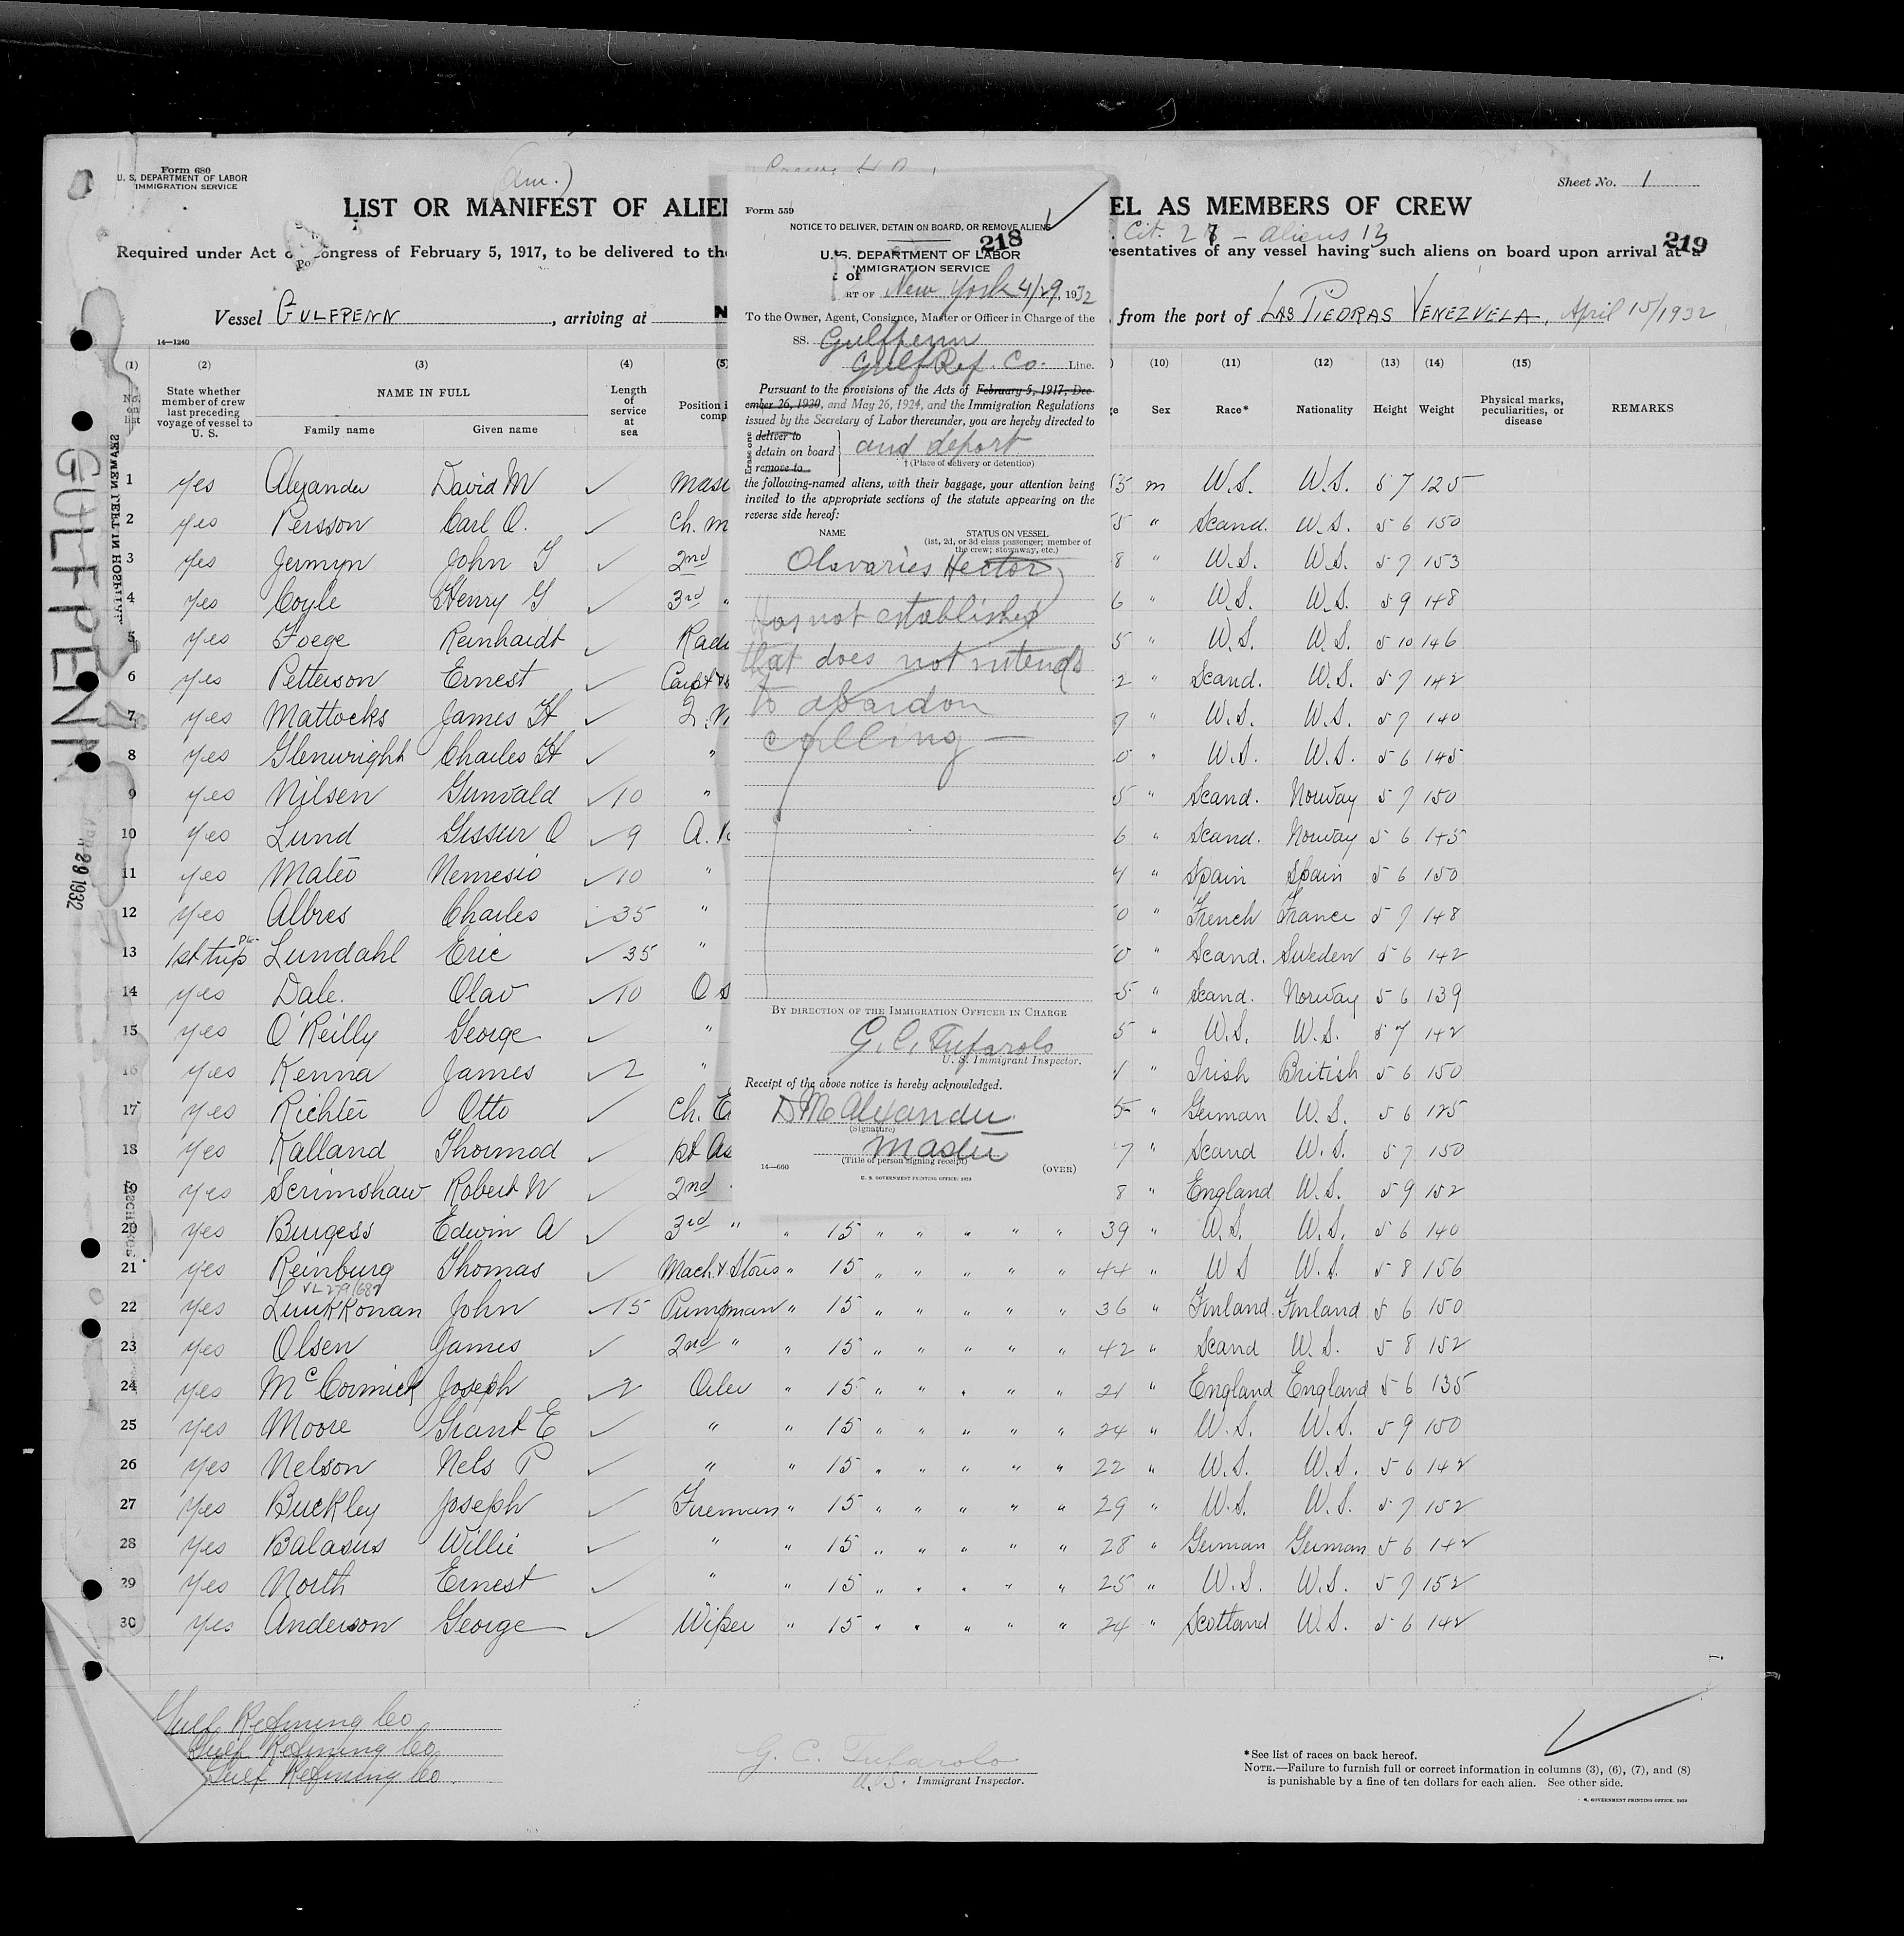 Form 680
U. S. DEPARTMENT OF LABOR
IMMIGRATION SERVICE
(Am.)
Sheet No. 1
LIST OR MANIFEST OF ALIE
EL AS MEMBERS OF CREW
Cit. 27 - Aliens 13
219
Required under Act of Congress of February 5, 1917, to be delivered to the
esentatives of any vessel having such aliens on board upon arrival at a
Vessel GULFPENN, arriving at N
from the port of LAS PIEDRAS VENEZUELA, April 15/1932
14—1240
(1) (2) (3) (4) (5) (10) (11) (12) (13) (14) (15)
No. on list
State whether member of crew last preceding voyage of vessel to U. S.
NAME IN FULL
Family name Given name
Length of service at sea
Position i comp
Sex Race* Nationality Height Weight
Physical marks, peculiarities, or disease
REMARKS
1 yes Alexander David M ✓ Mas 5 m U.S. U.S. 5 7 125
2 yes Persson Carl O. ✓ Ch. m 5 " Scand. U.S. 5 6 150
3 yes Jermyn John J ✓ 2nd 8 " U.S. U.S. 5 7 153
4 yes Coyle Henry G ✓ 3rd " 6 " U.S. U.S. 5 9 148
5 yes Foege Reinhardt ✓ Radi 5 " U.S. U.S. 5 10 146
6 yes Petterson Ernest ✓ Carpt 2 " Scand. U.S. 5 7 142
7 yes Mattocks James H ✓ Q. M 7 " U.S. U.S. 5 7 140
8 yes Glenwright Charles H ✓ " 0 " U.S. U.S. 5 6 145
9 yes Nilsen Gunvald ✓ 10 " 5 " Scand. Norway 5 7 150
10 yes Lund Gissur O ✓ 9 A. 6 " Scand. Norway 5 6 145
11 yes Mateo Nemesio ✓ 10 " 4 " Spain Spain 5 6 150
12 yes Albres Charles ✓ 35 " 0 " French France 5 7 148
13 1st trip Lundahl Eric ✓ 35 " 0 " Scand. Sweden 5 6 142
14 yes Dale. Olav ✓ 10 O s 5 " Scand. Norway 5 6 139
15 yes O'Reilly George ✓ " 5 " U.S. U.S. 5 7 142
16 yes Kenna James ✓ 2 " 1 " Irish British 5 6 150
17 yes Richter Otto ✓ Ch. E 5 " German U.S. 5 6 125
18 yes Kalland Thormod ✓ 1st As 7 " Scand U.S. 5 7 150
19 yes Scrimshaw Robert W ✓ 2nd 8 " England U.S. 5 9 152
20 yes Burgess Edwin A ✓ 3rd " " 15 " " " " " 39 " U.S. U.S. 5 6 140
21 yes Reinburg Thomas ✓ Mach. & Stores " 15 " " " " " 44 " U S U.S. 5 8 156
22 yes Luukkonan John ✓ 15 Pumpman " 15 " " " " " 36 " Finland Finland 5 6 150
23 yes Olsen James ✓ 2nd " " 15 " " " " " 42 " Scand U.S. 5 8 152
24 yes McCormick Joseph ✓ 2 Oiler " 15 " " " " " 21 " England England 5 6 135
25 yes Moore Grant E ✓ " " 15 " " " " " 24 " U.S. U.S. 5 9 150
26 yes Nelson Nels P ✓ " " 15 " " " " " 22 " U.S. U.S. 5 6 142
27 yes Buckley Joseph ✓ Fireman " 15 " " " " " 29 " U.S. U.S. 5 7 152
28 yes Balasus Willie ✓ " " 15 " " " " " 28 " German German 5 6 142
29 yes North Ernest ✓ " " 15 " " " " " 25 " U.S. U.S. 5 7 152
30 yes Anderson George ✓ Wiper " 15 " " " " " 24 " Scotland U.S. 5 6 142
Gulf Refining Co
Gulf Refining Co
Gulf Refining Co.
G. C. Tufarolo
U.S. Immigrant Inspector.
*See list of races on back hereof.
NOTE.—Failure to furnish full or correct information in columns (3), (6), (7), and (8)
is punishable by a fine of ten dollars for each alien. See other side.
GULFPENN
SEAMEN LEFT IN HOSPITAL
29 1932
Form 559
NOTICE TO DELIVER, DETAIN ON BOARD, OR REMOVE ALIENS
218
U. S. DEPARTMENT OF LABOR
IMMIGRATION SERVICE
RT OF New York 4/29, 1932
To the Owner, Agent, Consignee, Master or Officer in Charge of the
SS. Gulfpenn
Gulf Ref. Co. Line.
Pursuant to the provisions of the Acts of February 5, 1917, Dec
ember 26, 1920, and May 26, 1924, and the Immigration Regulations
issued by the Secretary of Labor thereunder, you are hereby directed to
Erase one
deliver to
detain on board and deport
remove to † (Place of delivery or detention)
the following-named aliens, with their baggage, your attention being
invited to the appropriate sections of the statute appearing on the
reverse side hereof:
NAME STATUS ON VESSEL
(1st, 2d, or 3d class passenger; member of
the crew; stowaway, etc.)
Olavaries Hector
Has not established
that does not intends
to abandon
calling —
BY DIRECTION OF THE IMMIGRATION OFFICER IN CHARGE
G. C. Tufarolo
U. S. Immigrant Inspector.
Receipt of the above notice is hereby acknowledged.
D M Alexander
(Signature)
Master
(Title of person signing receipt)
14—660
(OVER)
U. S. GOVERNMENT PRINTING OFFICE: 1929